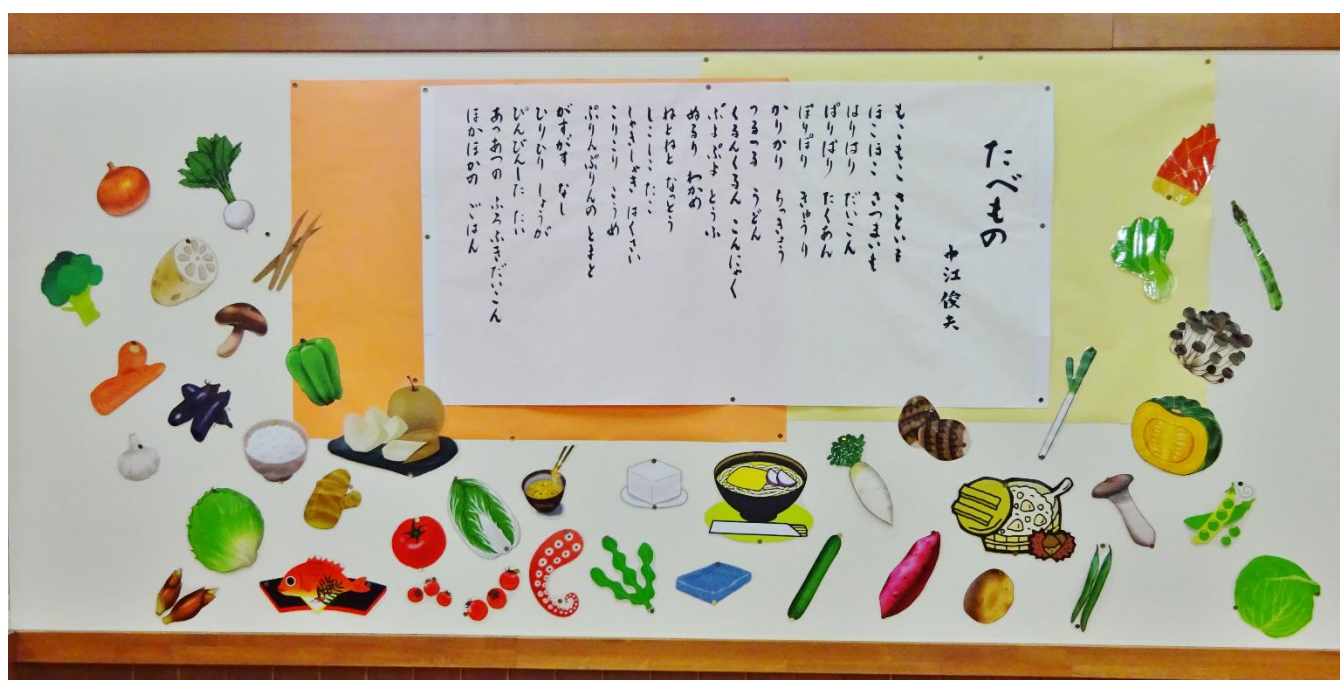 たべもの
中江俊夫
もこもこ さといも
ほこほこ さつまいも
はりはり だいこん
ぱりぱり たくあん
ぽりぽり きゅうり
かりかり らっきょう
つるつる うどん
くるんくるん こんにゃく
ぷよぷよ とうふ
ぬるり わかめ
ねとねと なっとう
しこしこ たこ
しゃきしゃき はくさい
こりこり こうめ
ぷりんぷりんの とまと
がすがす なし
ひりひり しょうが
ぴんぴんした たい
あつあつの ふろふきだいこん
ほかほかの ごはん